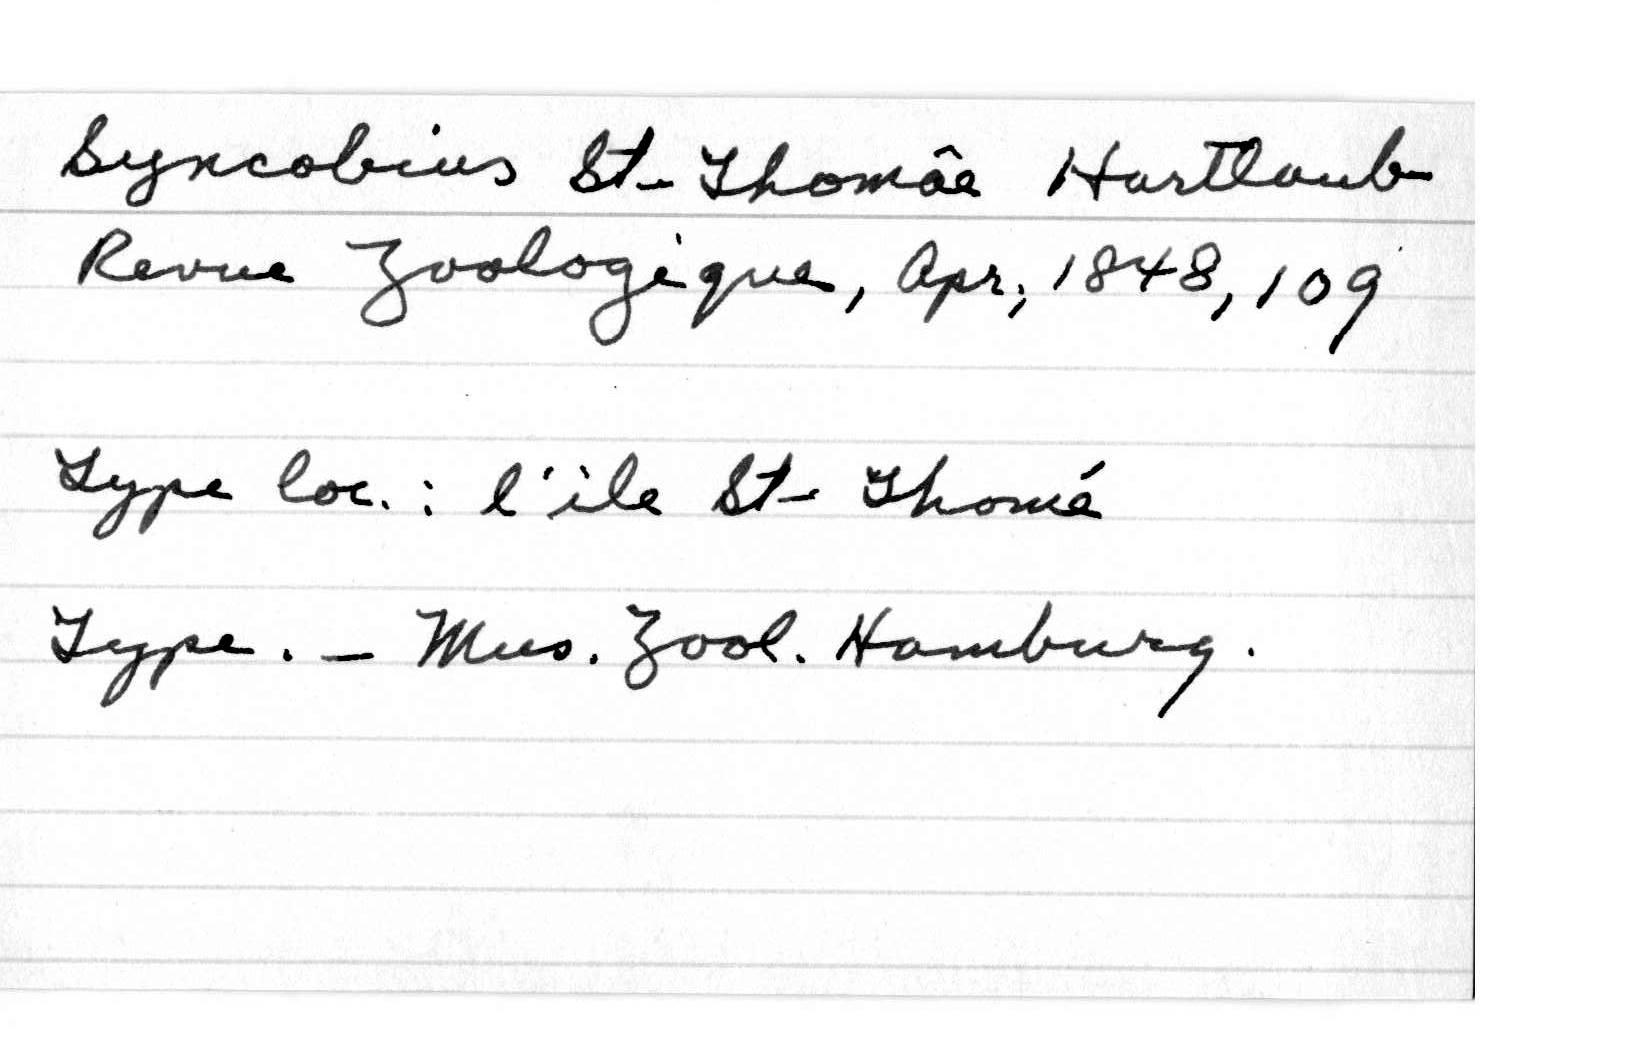 Syncobius St-Thomâe Hartlaub
Revue Zoologique, Apr., 1848, 109
Type loc. : l'ile St- Thomé
Type. - Mus. Zool. Hamburg.